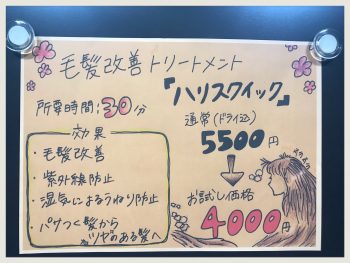 毛髪改善トリートメント
『ハリスクイック』
所要時間:30分
通常(ドライ込)
5500円
お試し価格
4000円
効果
・毛髪改善
・紫外線防止
・湿気によるうねり防止
・パサつく髪から
ツヤのある髪へ